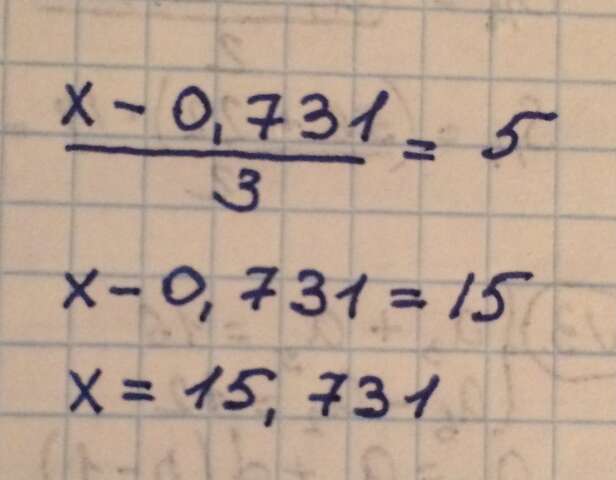 x - 0,731 / 3 = 5
x - 0,731 = 15
x = 15,731